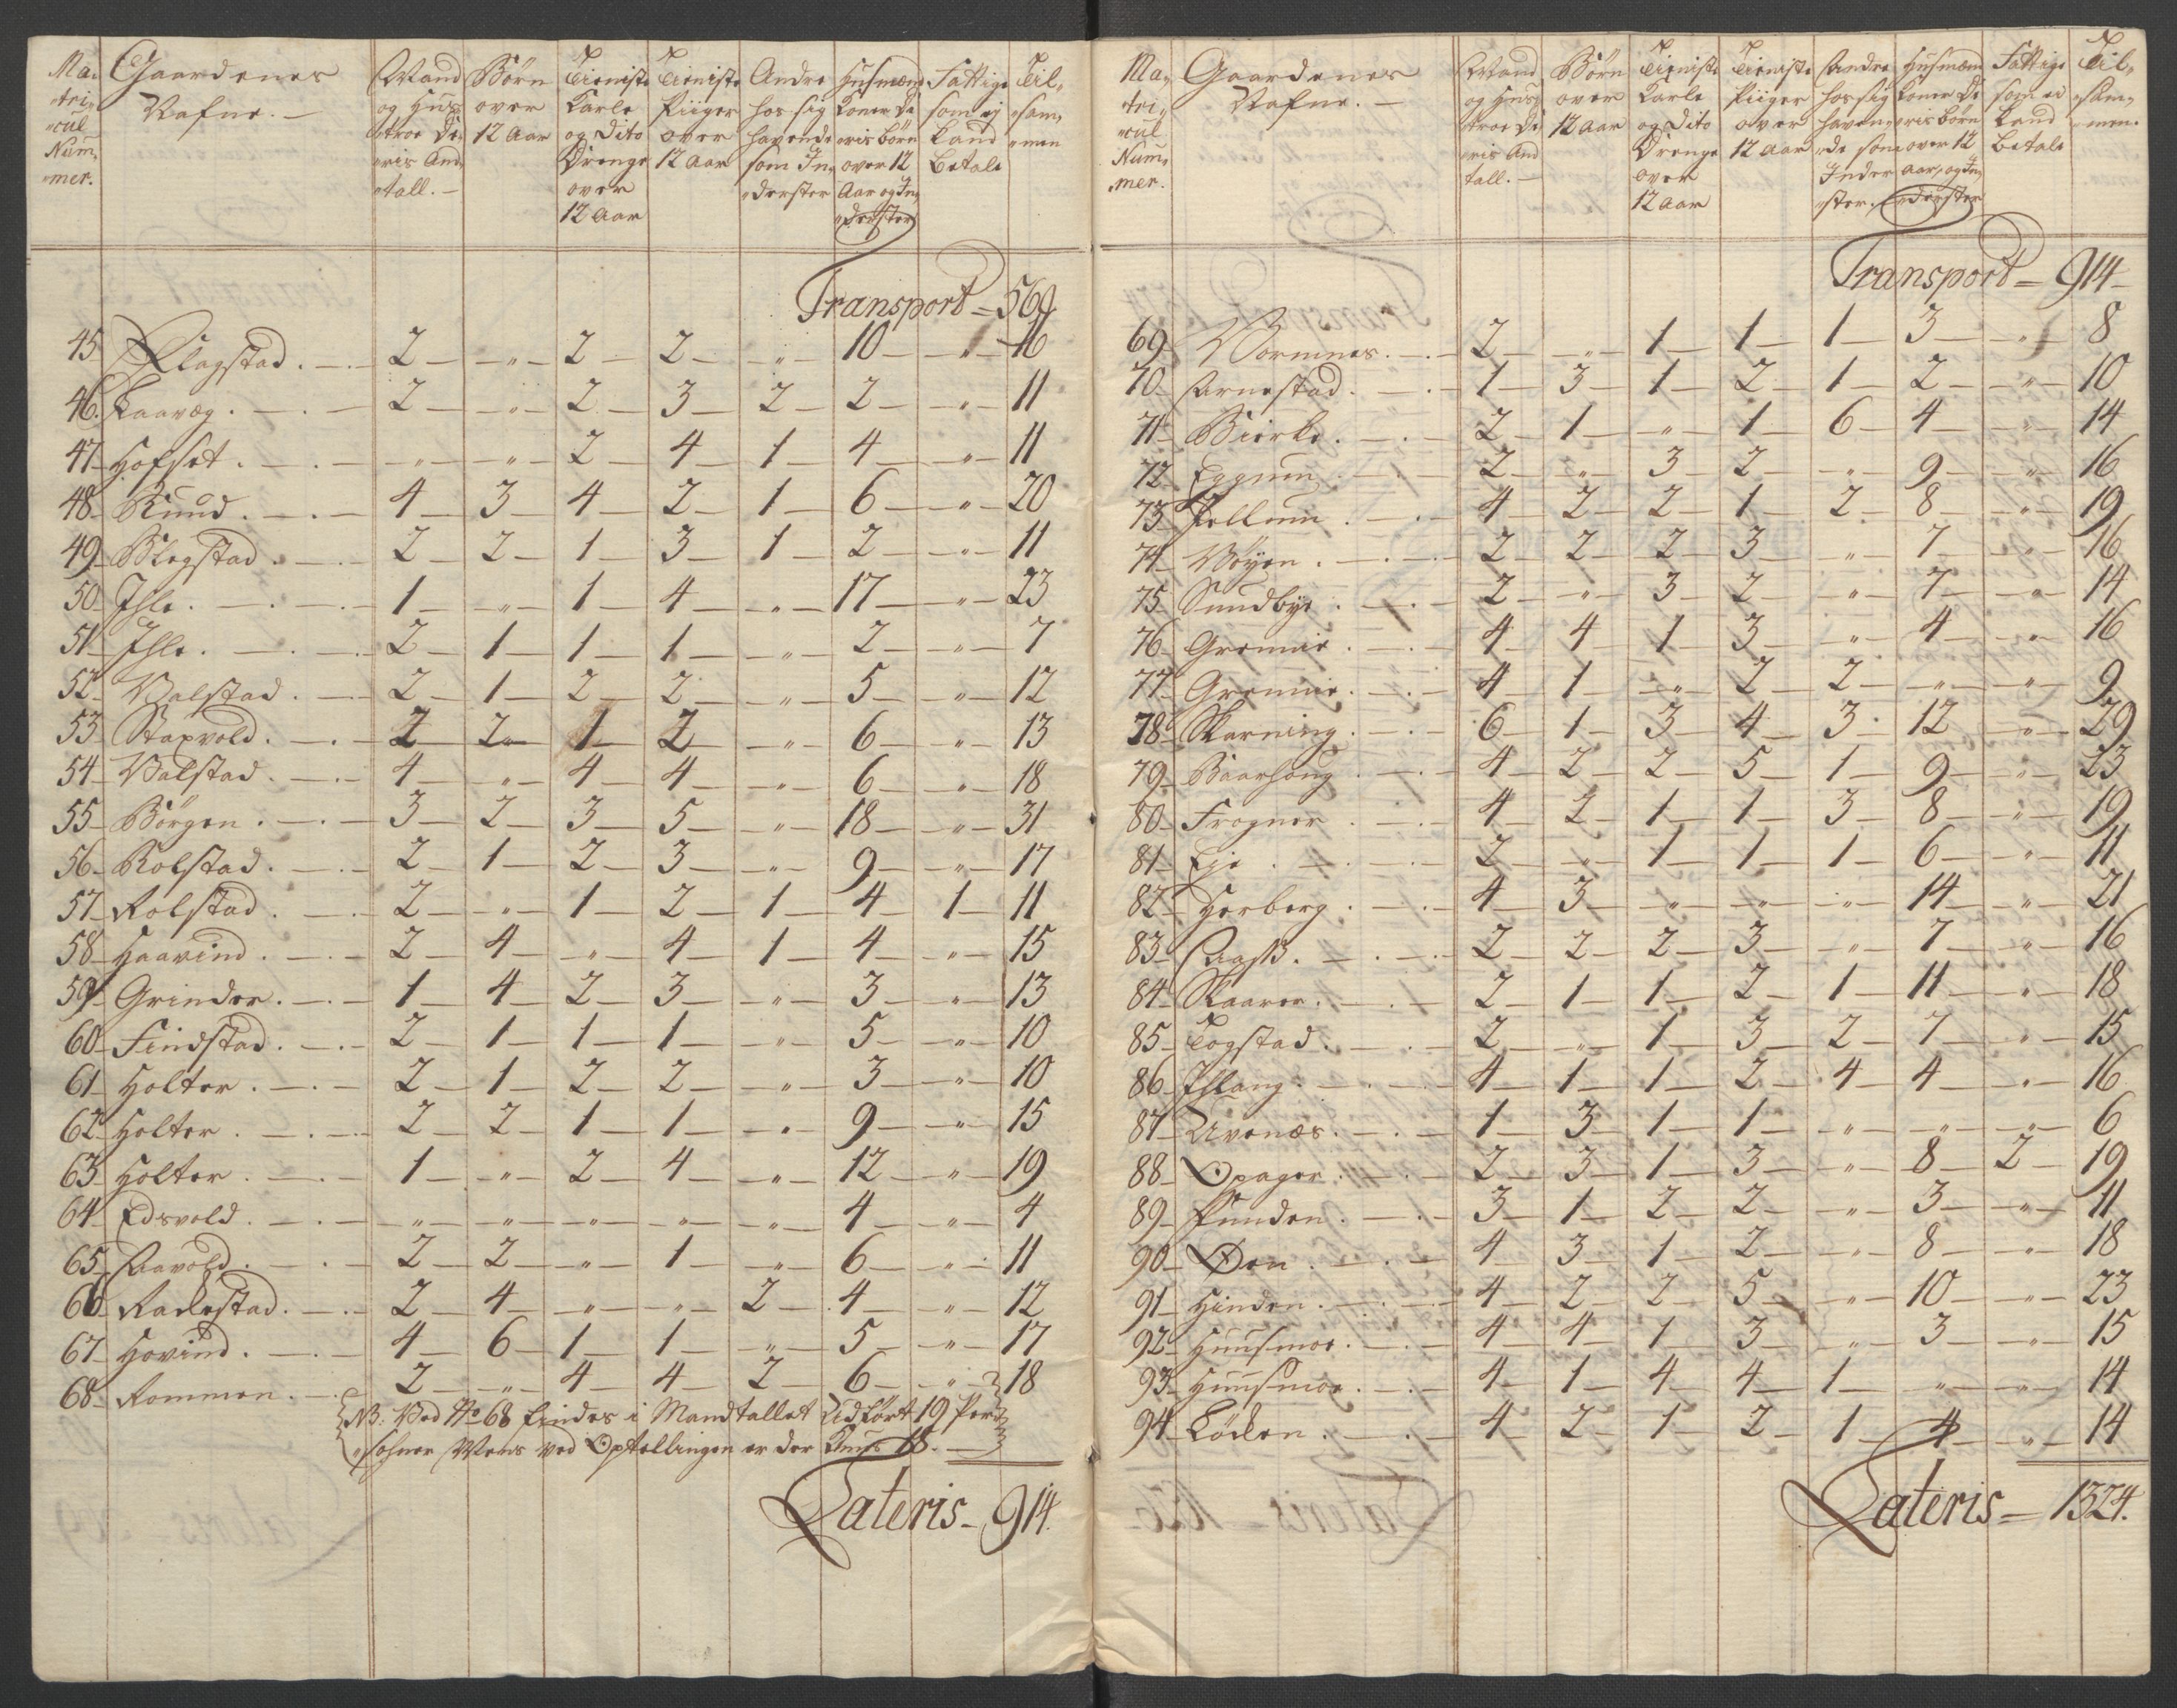 Ma„ Gaardenes Mand Børn Tieniste Tieniste Andre Husmænd Fattige Til„
„tri„ Nafne. — og Hus over Karle Piiger hos sig Koner De som ej „sam„
„cul troe De 12 Aar og Dito over havende „ris børn Kand „men
Num„ „ris And Drenge 12 Aar som In„ over 12 betale
„mer. „tall. — over „derster Aar og In„
12 Aar „derster
Transport = 569
45 Klagstad . — . 2 — „ — 2 — 2 — „ — 10 — „ — 16
46. Kaavæg . — . — 2 — „ — 2 — 3 — 2 — 2 — „ — 11
47 Hofset . — . — „ — „ — 2 — 4 — 1 — 4 — „ — 11
48 Ruud . — . — 4 — 3 — 4 — 2 — 1 — 6 — „ — 20
49 Blegstad . — . 2 — 2 — 1 — 3 — 1 — 2 — „ — 11
50 Ihle . — . — 1 — „ — 1 — 4 — „ — 17 — „ — 23
51 Ihle . — . — 2 — 1 — 1 — 1 — „ — 2 — „ — 7
52 Valstad . — . 2 — 1 — 2 — 2 — „ — 5 — „ — 12
53 Stapvold . — . 2 — 2 — 1 — 2 — „ — 6 — „ — 13
54 Valstad . — . 4 — „ — 4 — 4 — „ — 6 — „ — 18
55 Børgen . — . 3 — 2 — 3 — 5 — „ — 18 — „ — 31
56 Rolstad . — . 2 — 1 — 2 — 3 — „ — 9 — „ — 17
57 Rolstad . — . 2 — „ — 1 — 2 — 1 — 4 — 1 — 11
58 Haavind . — . 2 — 4 — „ — 4 — 1 — 4 — „ — 15
59 Grinder . — . 1 — 4 — 2 — 3 — „ — 3 — „ — 13
60 Findstad . — . 2 — 1 — 1 — 1 — „ — 5 — „ — 10
61 Holter . — . 2 — 1 — 2 — 2 — „ — 3 — „ — 10
62 Holter . — . 2 — 2 — 1 — 1 — „ — 9 — „ — 15
63 Holter . — . 1 — „ — 2 — 4 — „ — 12 — „ — 19
64 Edsvold . — . „ — „ — „ — „ — „ — 4 — „ — 4
65 Aavold . — . 2 — 2 — „ — 1 — „ — 6 — „ — 11
66 Rakestad . — . 2 — 4 — „ — „ — 2 — 4 — „ — 12
67 Hovind . — . 4 — 6 — 1 — 1 — „ — 5 — „ — 17
68 Rommen . — . 2 — „ — 4 — 4 — 2 6 — „ — 18
NB: Ved No 68 findes i Mandtallet Udført 19 Per„
„sohner Mens ved Optellingen er der Kuns 18. —
Lateris — 914.
Ma„ Gaardenes Mand Børn Tieniste Tieniste Andre Husmænd Fattige Til„
„tri„ Nafne. — og Hus over Karle Piiger hos sig Koner De som ei „sam„
„cul troe De 12 Aar og Dito over haven„ „ris børn Kand „men.
Num„ „ris And Drenge 12 Aar „de som over 12 betale
„mer. tall. — over Inder Aar, og In„
12 Aar „ster. „derster
Transport = 914 —
69 Wormnes . — . 2 — „ — 1 — 1 — 1 — 3 — „ — 8
70 Arnestad . — . 1 — 3 — 1 — 2 — 1 — 2 — „ — 10
71 Bierke . — . 2 — 1 — „ — 1 — 6 — 4 — „ — 14
72 Eggum . — . 2 — „ — 3 — 2 — „ — 9 — „ — 16
73 Jellum . — . 4 — 2 — 2 — 1 — 2 — 8 — „ — 19
74 Vøyen . — . 2 — 2 — 2 — 3 — „ — 7 — „ — 16
75 Sundbye . — . 2 — „ — 3 — 2 — „ — 7 — „ — 14
76 Grønnie . — . 4 — 4 — 1 — 3 — „ — 4 — „ — 16
77 Grønnie . — . 4 — 1 — „ — 2 — 2 — „ — „ — 9
78 Skarning . — . 6 — 1 — 3 — 4 — 3 — 12 — „ — 29
79 Baarhoug . — . 4 — 2 — 2 — 5 — 1 — 9 — „ — 23
80 Frogner . — . 4 — 2 — 1 — 1 — 3 — 8 — „ — 19
81 Eje . — . 2 — „ — 1 — 1 — 1 — 6 — „ — 11
82 Herberg . — . 4 — 3 — „ — „ — „ — 14 — „ — 21
83 Aass . — . 2 — 2 — 2 — 3 — „ — 7 — „ — 16
84 Skaarer . — . 2 — 1 — 1 — 2 — 1 — 11 — „ — 18
85 Togstad . — . 2 — „ — 1 — 3 — 2 — 7 — „ — 15
86 Ihlang . — . 4 — 1 — 1 — 2 — 4 — 4 — „ — 16
87 Uvenæs . — . 1 — 3 — 1 — 1 — „ — „ — „ — 6
88 Opager . — . 2 — 3 — 1 — 3 — „ — 8 — 2 — 19
89 Funden . — . 3 — 1 — 2 — 2 — „ — 3 — „ — 11
90 Øen . — . 4 — 3 — 1 — 2 — „ — 8 — „ — 18
91 Hinden . — . 4 — 2 — 2 — 5 — „ — 10 — „ — 23
92 Huusmoe . — . 4 — 4 — 1 — 3 — „ — 3 — „ — 15
93 Huusmoe . — . 4 — 1 — 4 — 4 — 1 — „ — „ — 14
94 Løken . — . 4 — 2 — 1 — 2 — 1 — 4 — „ — 14
Lateris = 1324.